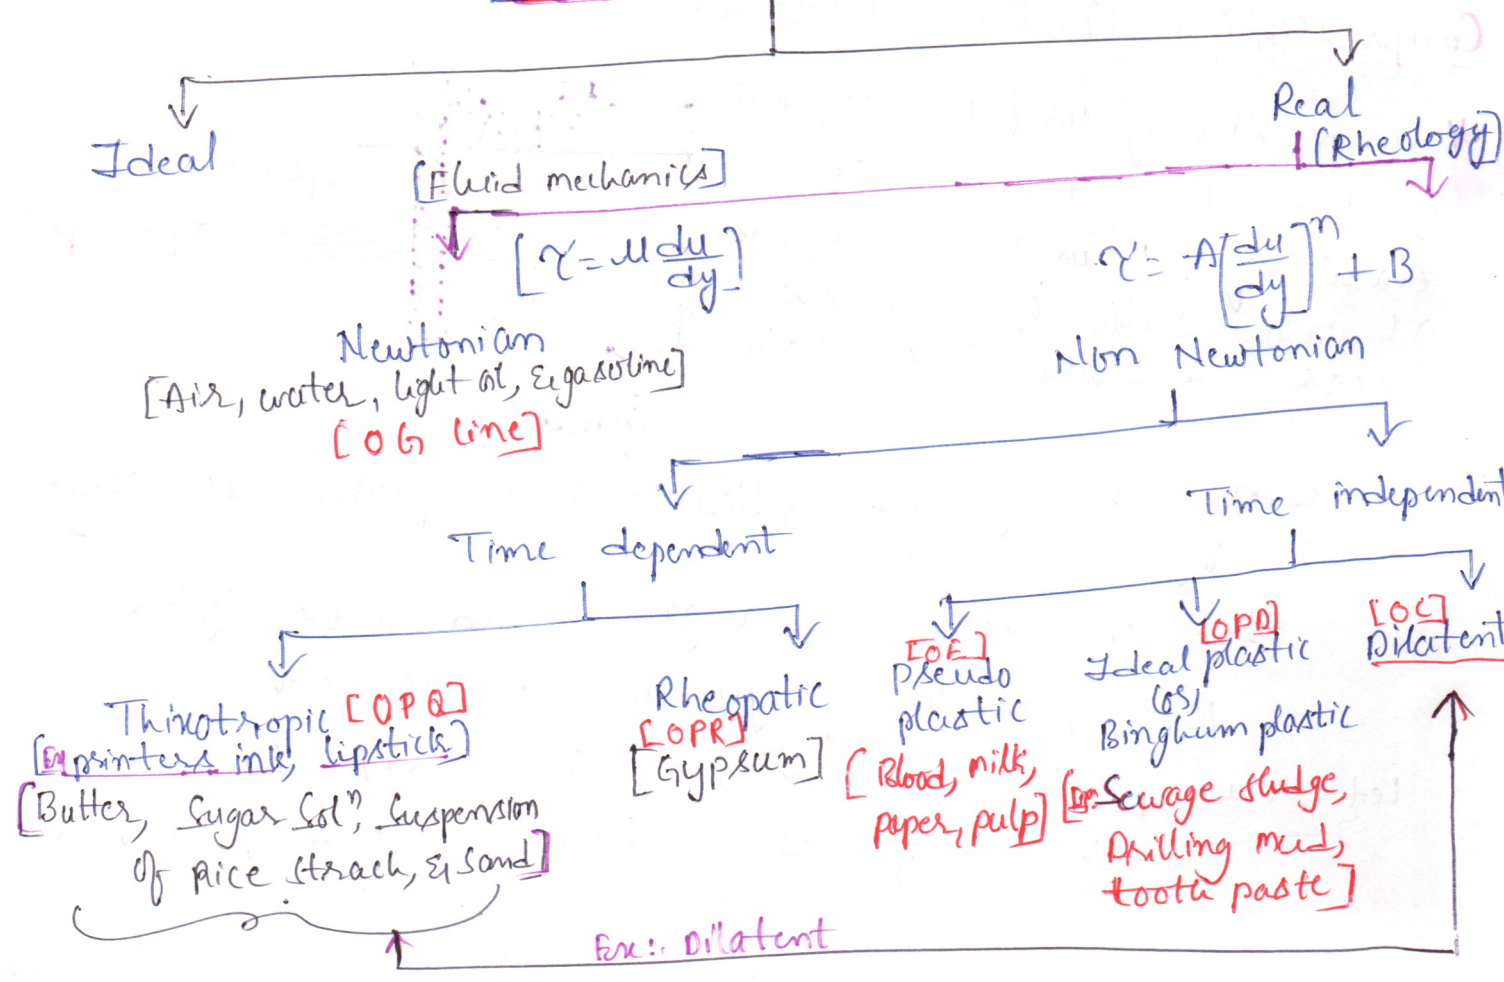 Ideal
Real
[Rheology]
[Fluid mechanics]
[τ = μ du/dy]
τ = A[du/dy]ⁿ + B
Newtonian
Non Newtonian
[Air, water, light oil, & gasoline]
[OG line]
Time dependent
Time independent
Thixotropic [OPQ]
[Ex printers ink, lipstick]
[Butter, Sugar Solⁿ, Suspension
of Rice strach, & Sand]
Rheopatic
[OPR]
[Gypsum]
[OE]
Pseudo
plastic
[Blood, milk,
paper, pulp]
[OPD]
Ideal plastic
(or)
Binghum plastic
[Sewage sludge,
Drilling mud,
tooth paste]
[OC]
Dilatent
Ex:. Dilatent